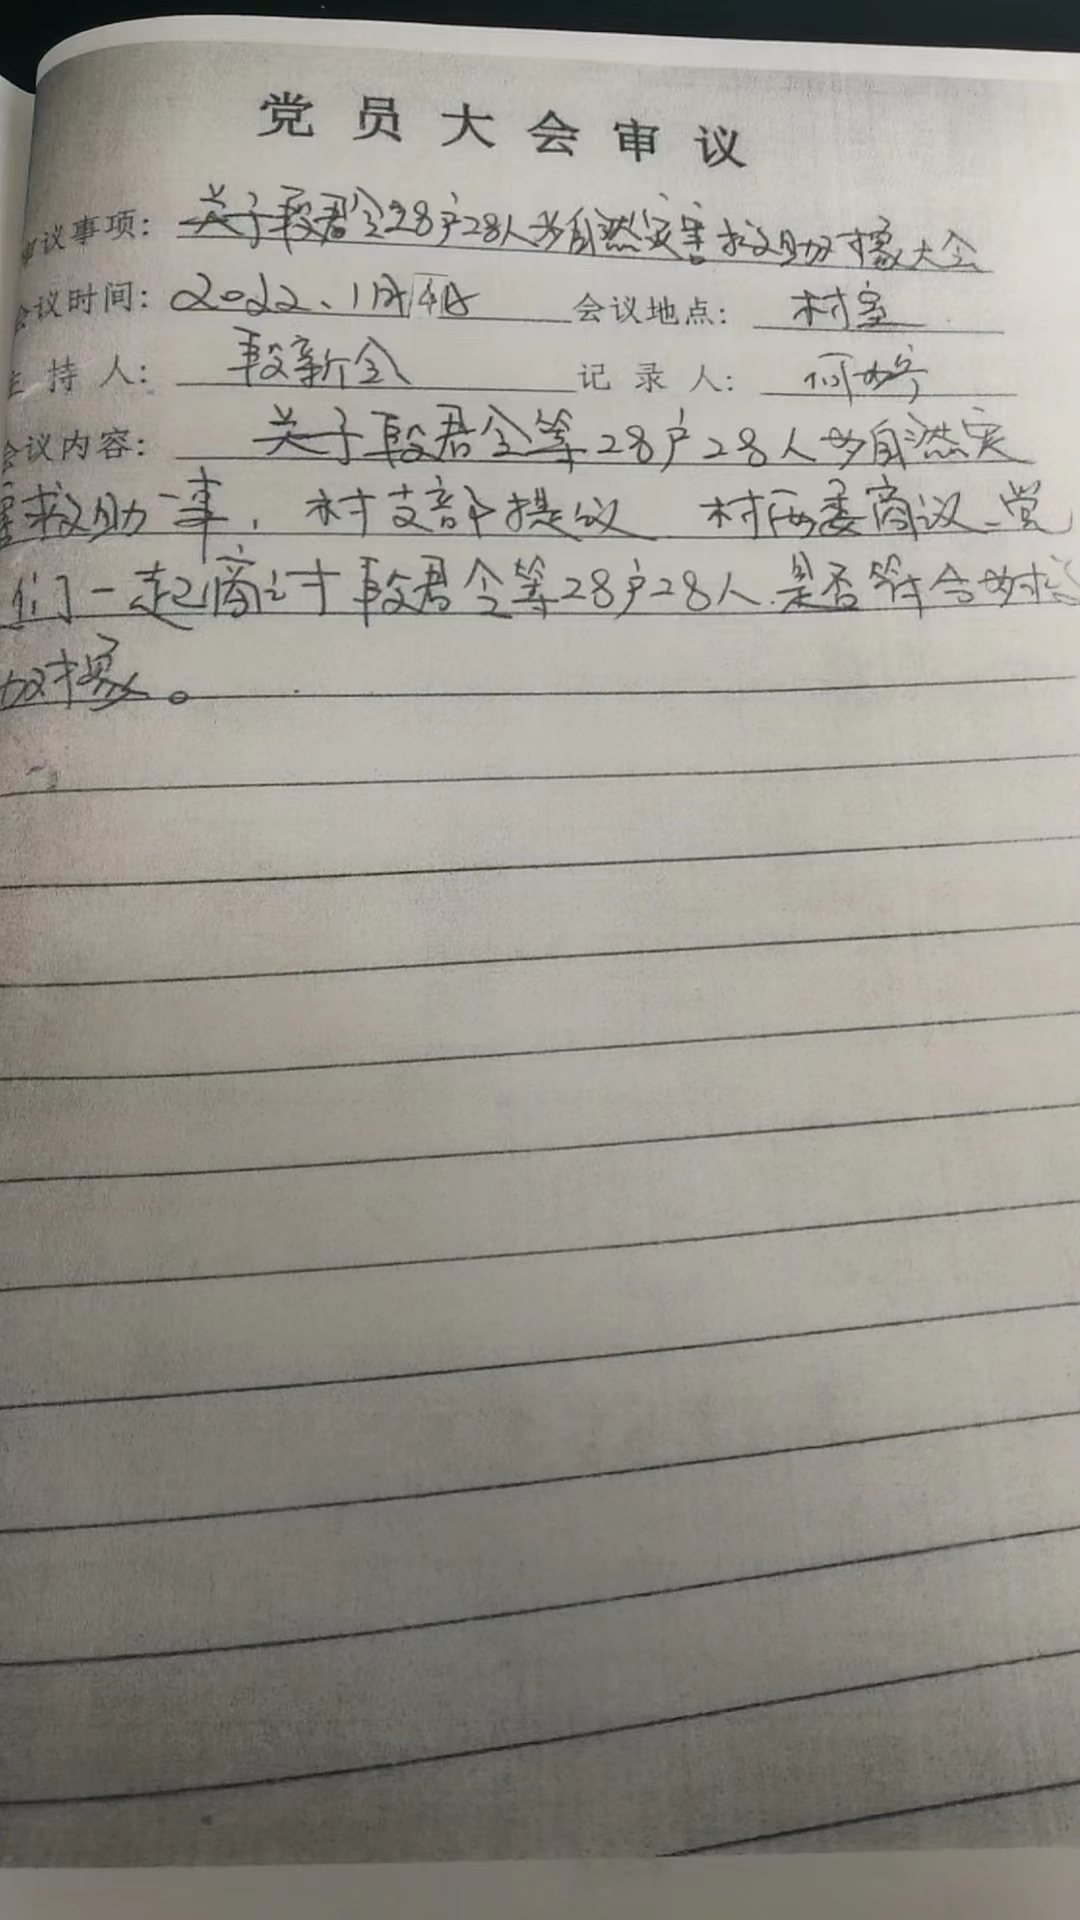 党员大会审议
审议事项: 关于段君令28户28人为自然灾害救助对象大会
会议时间: 2022、1月4日 会议地点: 村室
主持人: 段新会 记录人: 何婷
会议内容: 关于段君令等28户28人为自然灾
害救助一事, 村支部提议 村两委商议、党
们一起商讨段君令等28户28人是否符合为救
助对象。